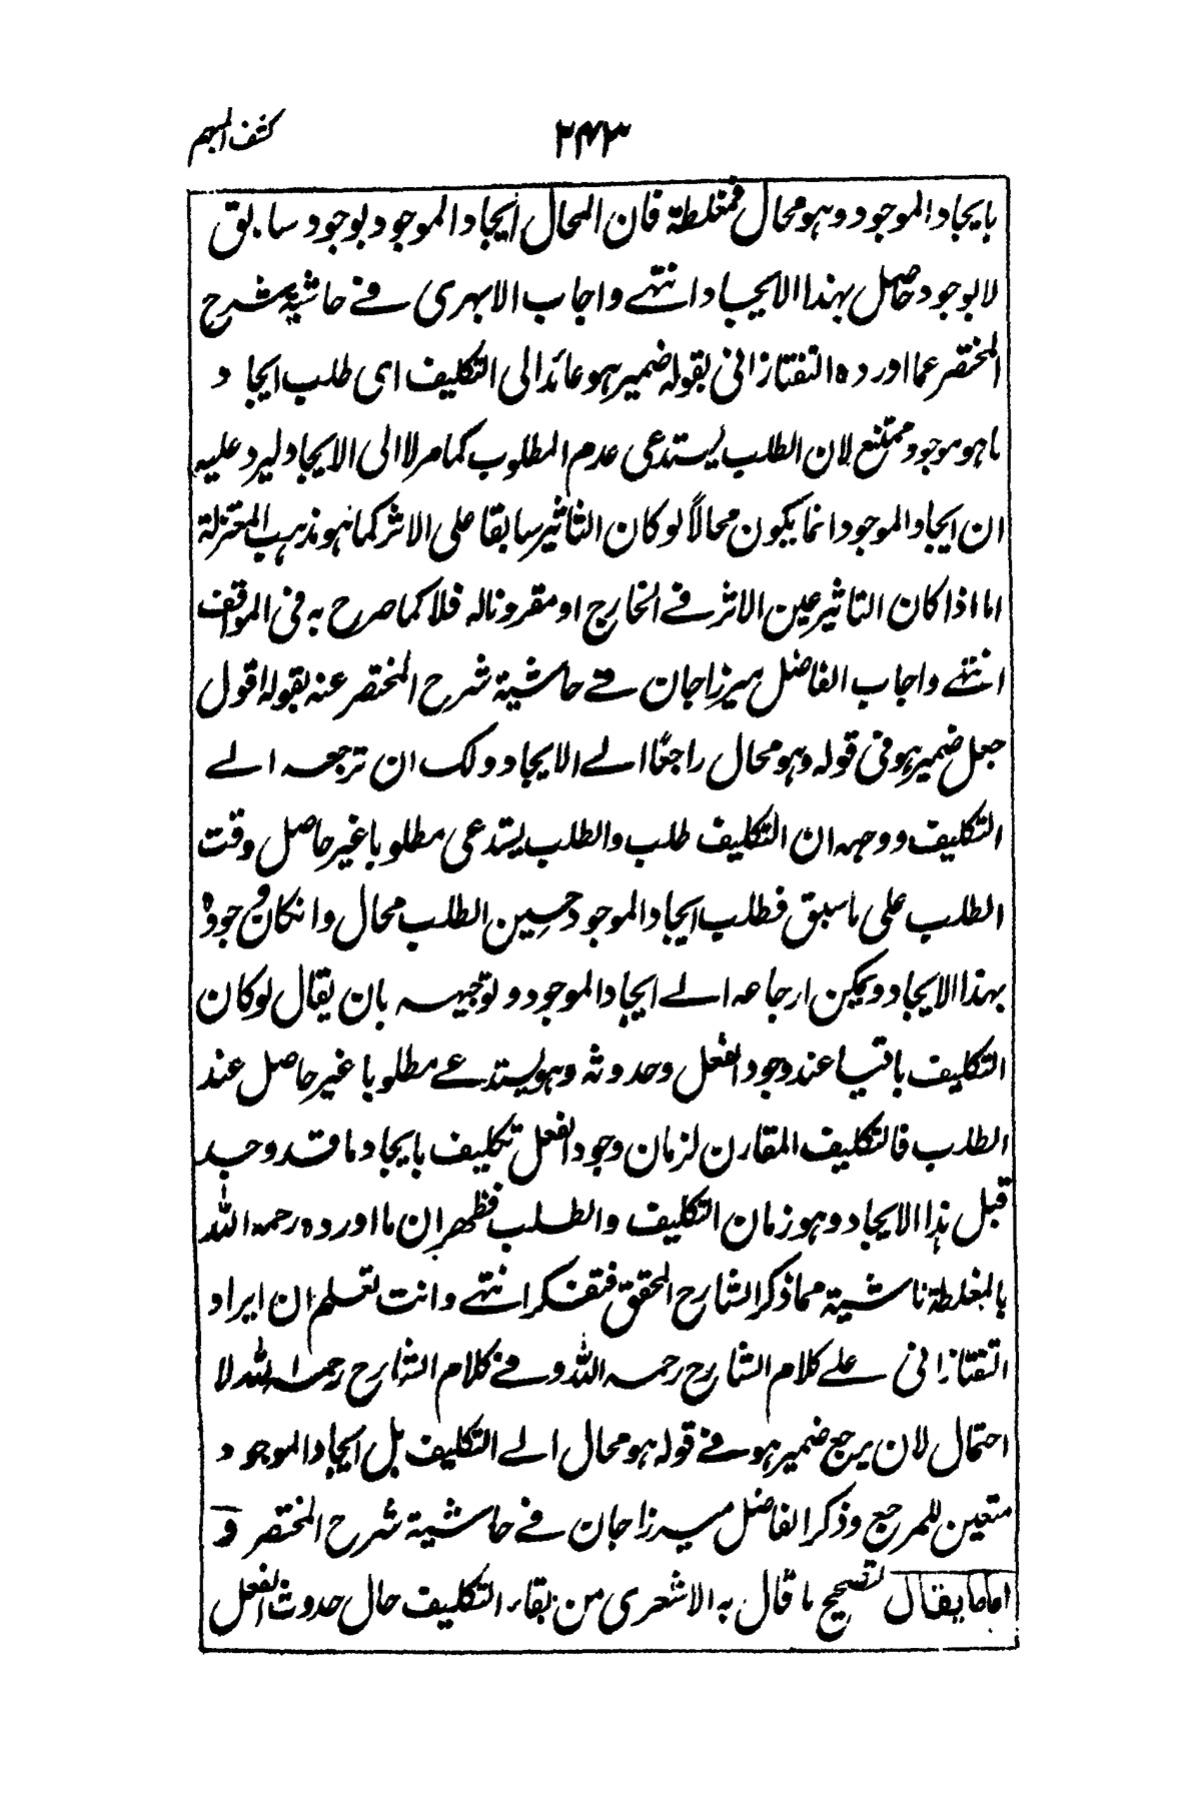 كشف المبهم
٢٤٣
بايجاد الموجود وهو محال فمغلطة فان المحال ايجاد الموجود بوجود سابق
لا بوجود حاصل بهذا الايجاد انتهے واجاب الابهرى فے حاشية شرح
المختصر عما اورده التفتازانى بقوله ضمير هو عائد الى التكليف اى طلب ايجاد
ما هو موجود ممتنع لان الطلب يستدعى عدم المطلوب كما مر لا الى الايجاد ليرد عليه
ان ايجاد الموجود انما يكون محالاً لو كان التاثير سابقا على الاثر كما هو مذهب المعتزلة
اما اذا كان التاثير عين الاثر فے الخارج او مقرونا له فلا كما صرح به فى المواقف
انتهے واجاب الفاضل ميرزا جان فے حاشية شرح المختصر عنه بقوله اقول
جعل ضمير هو فى قوله وهو محال راجعًا الے الايجاد ولك ان ترجعه الے
التكليف ووجهه ان التكليف طلب والطلب يستدعى مطلوبا غير حاصل وقت
الطلب على ما سبق فطلب ايجاد الموجود حين الطلب محال وانكان وجوده
بهذا الايجاد ويمكن ارجاعه الے ايجاد الموجود وتوجيهه بان يقال لو كان
التكليف باقيا عند وجود الفعل وحدوثه وهو يستدعے مطلوبا غير حاصل عند
الطلب فالتكليف المقارن لزمان وجود الفعل تكليف بايجاد ما قد وجد
قبل هذا الايجاد وهو زمان التكليف والطلب فظهر ان ما اورده رحمه الله
بالمغلطة ناشية مما ذكر الشارح المحقق فتفكر انتهے وانت تعلم ان ايراد
التفتازانى علے كلام الشارح رحمه الله وفے كلام الشارح رحمه الله لا
احتمال لان يرجع ضمير هو فے قوله هو محال الے التكليف بل ايجاد الموجود
متعين للمرجع وذكر الفاضل ميرزا جان فے حاشية شرح المختصر و
اما ما يقال لتصحيح ما قال به الاشعرى من بقاء التكليف حال حدوث الفعل